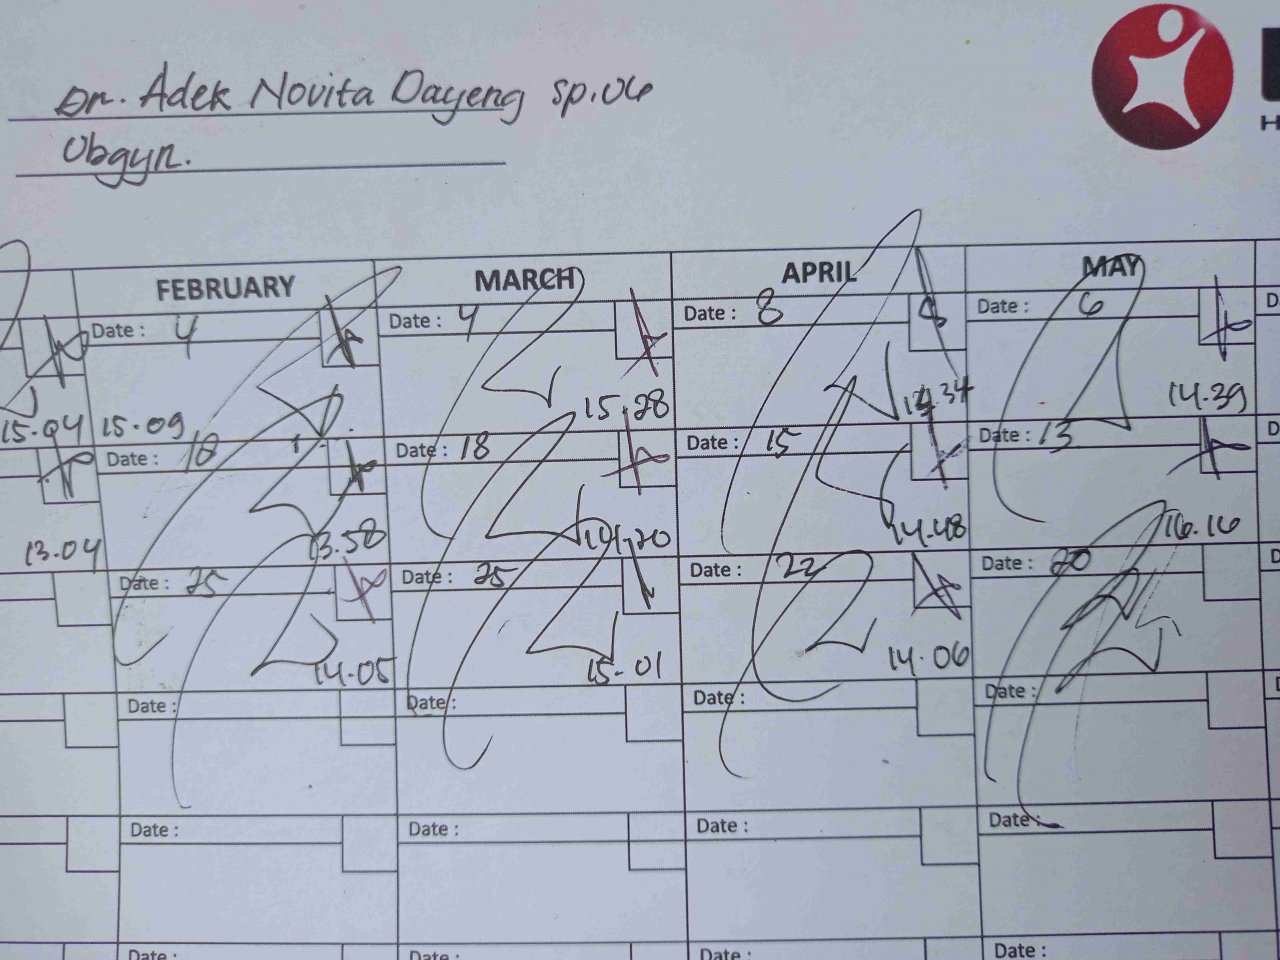 Dr. Adek Novita Dayeng sp.OG
Obgyn.
H
FEBRUARY MARCH APRIL MAY
Date : 4 Date : 4 Date : 8 Date : 6
15.04 15.09 15.28 14.39
Date : 18 Date : 18 Date : 15 Date : 13
13.04 13.58 14.20 14.48 16.16
Date : 25 Date : 25 Date : 22 Date : 20
14.05 15.01 14.06
Date : Date : Date : Date :
Date : Date : Date : Date :
Date : Date : Date : Date :